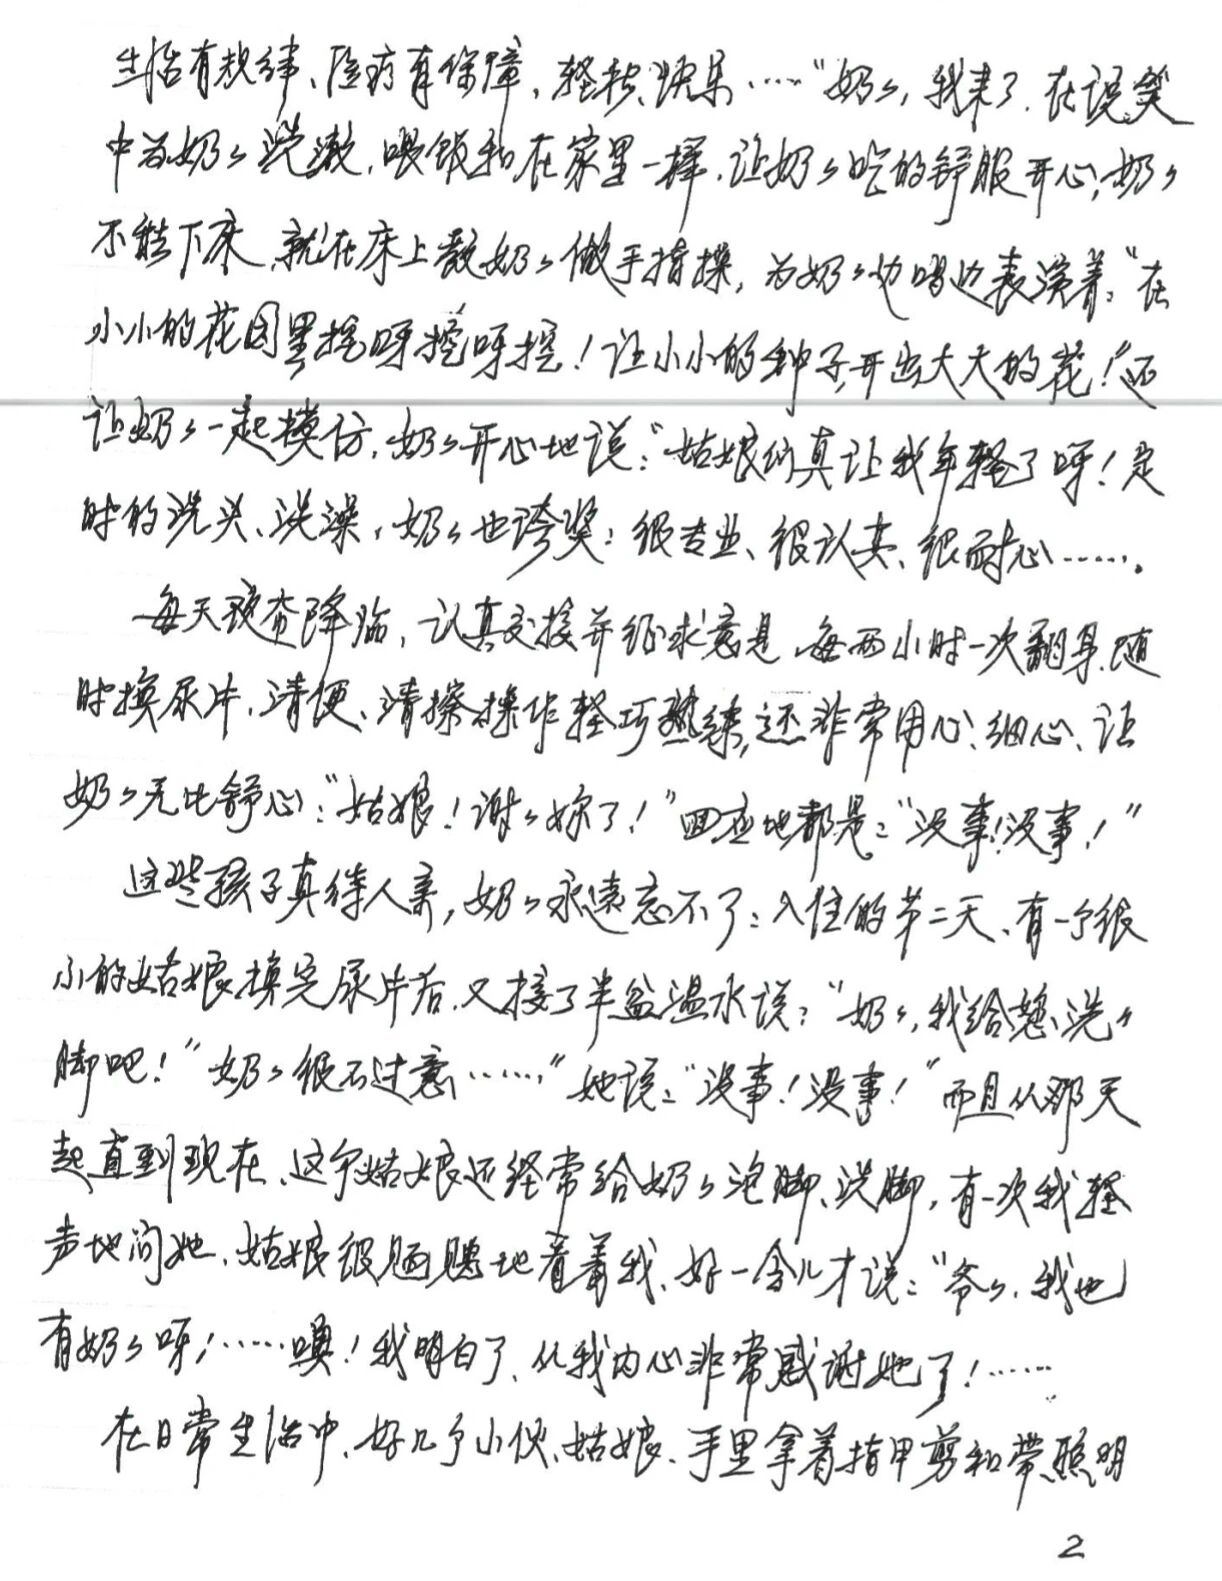 生活有规律、医疗有保障，轻松、快乐……“奶々，我来了．在说笑
中为奶々洗漱．喂饭和在家里一样．让奶々吃的舒服开心；奶々
不能下床，就在床上教奶々做手指操，为奶々边唱边表演着：“在
小小的花园里挖呀挖呀挖！让小小的种子，开出大大的花！”还
让奶々一起模仿，奶々开心地说：“姑娘们真让我年轻了呀！定
时的洗头、洗澡，奶々也夸奖：很专业、很认真、很耐心……。
每天夜夜降临，认真交接并征求意见，每两小时一次翻身．随
时换尿片、清便、清擦操作轻巧熟练，还非常用心、细心、让
奶々无比舒心：“姑娘！谢々妳了！”回应地都是：“没事！没事！”
这些孩子真待人亲，奶々永远忘不了：入住的第二天、有一个很
小的姑娘换完尿片后．又接了半盆温水说：“奶々，我给您洗々
脚吧！”奶々很不过意……“她说：“没事！没事！”而且从那天
起直到现在、这个姑娘还经常给奶々泡脚、洗脚，有一次我轻
声地问她、姑娘很腼腆地看着我、好一会儿才说：“爷々．我也
有奶々呀！……噢！我明白了、从我内心非常感谢她了！……
在日常生活中、好几个小伙、姑娘、手里拿着指甲剪和带照明
2